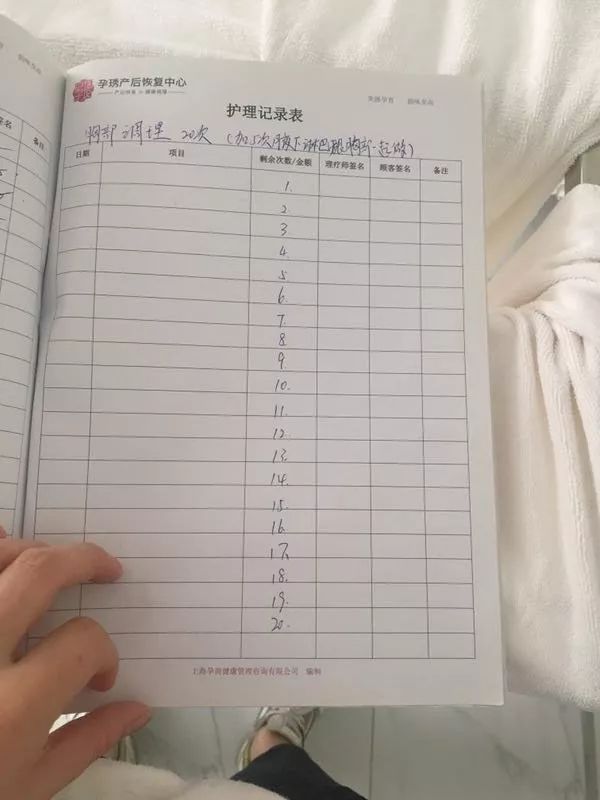 孕琇产后恢复中心
护理记录表
胸部调理 20次 (加5次腋下淋巴跟胸部一起做)
日期 项目 剩余次数/金额 理疗师签名 顾客签名 备注
1.
2
3
4.
5
6.
7.
8
9.
10.
11.
12.
13.
14.
15.
16.
17.
18.
19.
20.
签名 备注